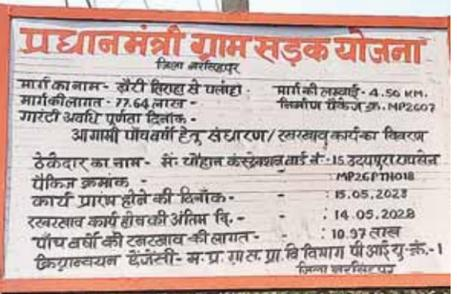 प्रधानमंत्री ग्राम सड़क योजना
जिला नरसिंहपुर
मार्ग का नाम - खैरी तिराहा से पलोहा मार्ग की लम्बाई - 4.50 KM.
मार्ग की लागत - 77.64 लाख - निर्माण पैकेज क्र. MP2607
गारंटी अवधि पूर्णता दिनांक -
आगामी पाँच वर्षों हेतु संधारण / रखरखाव कार्य का विवरण
ठेकेदार का नाम - मे. चौहान कंस्ट्रक्शन वार्ड नं - 15 उदयपुरा रायसेन
पैकेज क्रमांक - : MP26PTN018
कार्य प्रारंभ होने की दिनाँक - : 15.05.2023
रखरखाव कार्य की अंतिम ति. - : 14.05.2028
पाँच वर्षों की रखरखाव की लागत - : 10.97 लाख
क्रियान्वयन एजेंसी - म.प्र. ग्रा. स. प्रा. वि विभाग पी आई यु. क्रं. - 1
जिला नरसिंहपुर